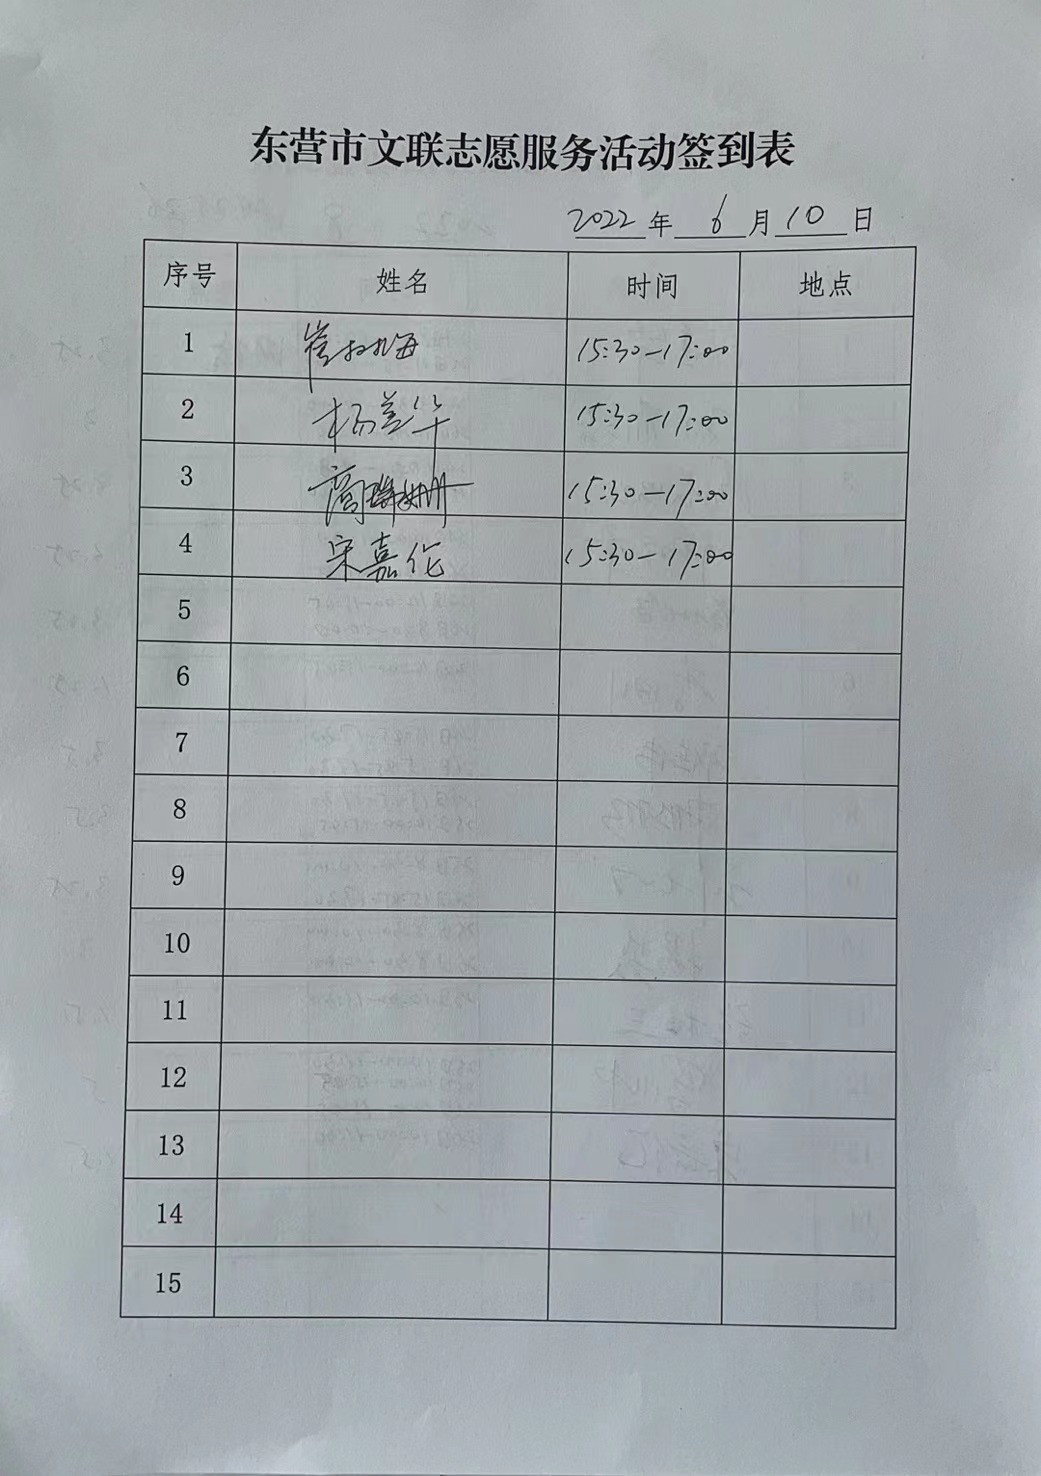 东营市文联志愿服务活动签到表
2022 年 6 月 10 日
序号 姓名 时间 地点
1 崔 海 15:30-17:00
2 杨兰华 15:30-17:00
3 15:30-17:00
4 宋嘉伦 15:30-17:00
5
6
7
8
9
10
11
12
13
14
15